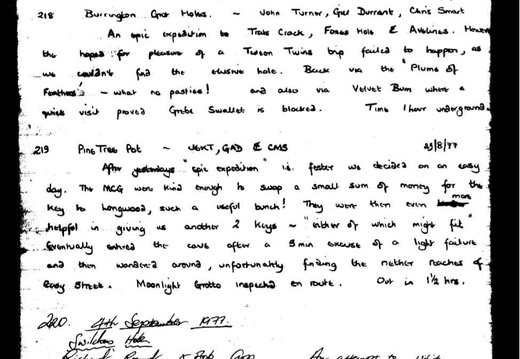 218 Burrington Grot Holes. ~ John Turner, Ger Durrant, Chris Smart
An epic expedition to Trats Crack, Foxes Hole & Avelines. However
the hoped for pleasure of a Tween Twins trip failed to happen, as
we couldn't find the elusive hole. Back via the "Plume of
Feathers" ~ what no pasties! and also via Velvet Bum where a
quick visit proved Grebe Swallet is blocked. Time 1 hour underground.
219 Pine Tree Pot ~ JEKT, GAD & CMS 29/8/77
After yesterdays "epic expedition" is foster we decided on an easy
day. The MCG were kind enough to swap a small sum of money for the
key to Longwood, such a useful bunch! They were then even more
helpful in giving us another 2 keys ~ "either of which might fit"
Eventually entered the cave after a 5min excuse of a light failure
and then wandered around, unfortunately finding the nether reaches of
Easy Street. Moonlight Grotto inspected en route. Out in 1½ hrs.
220. 4th September 1977.
Swildons Hole
An attempt to visit